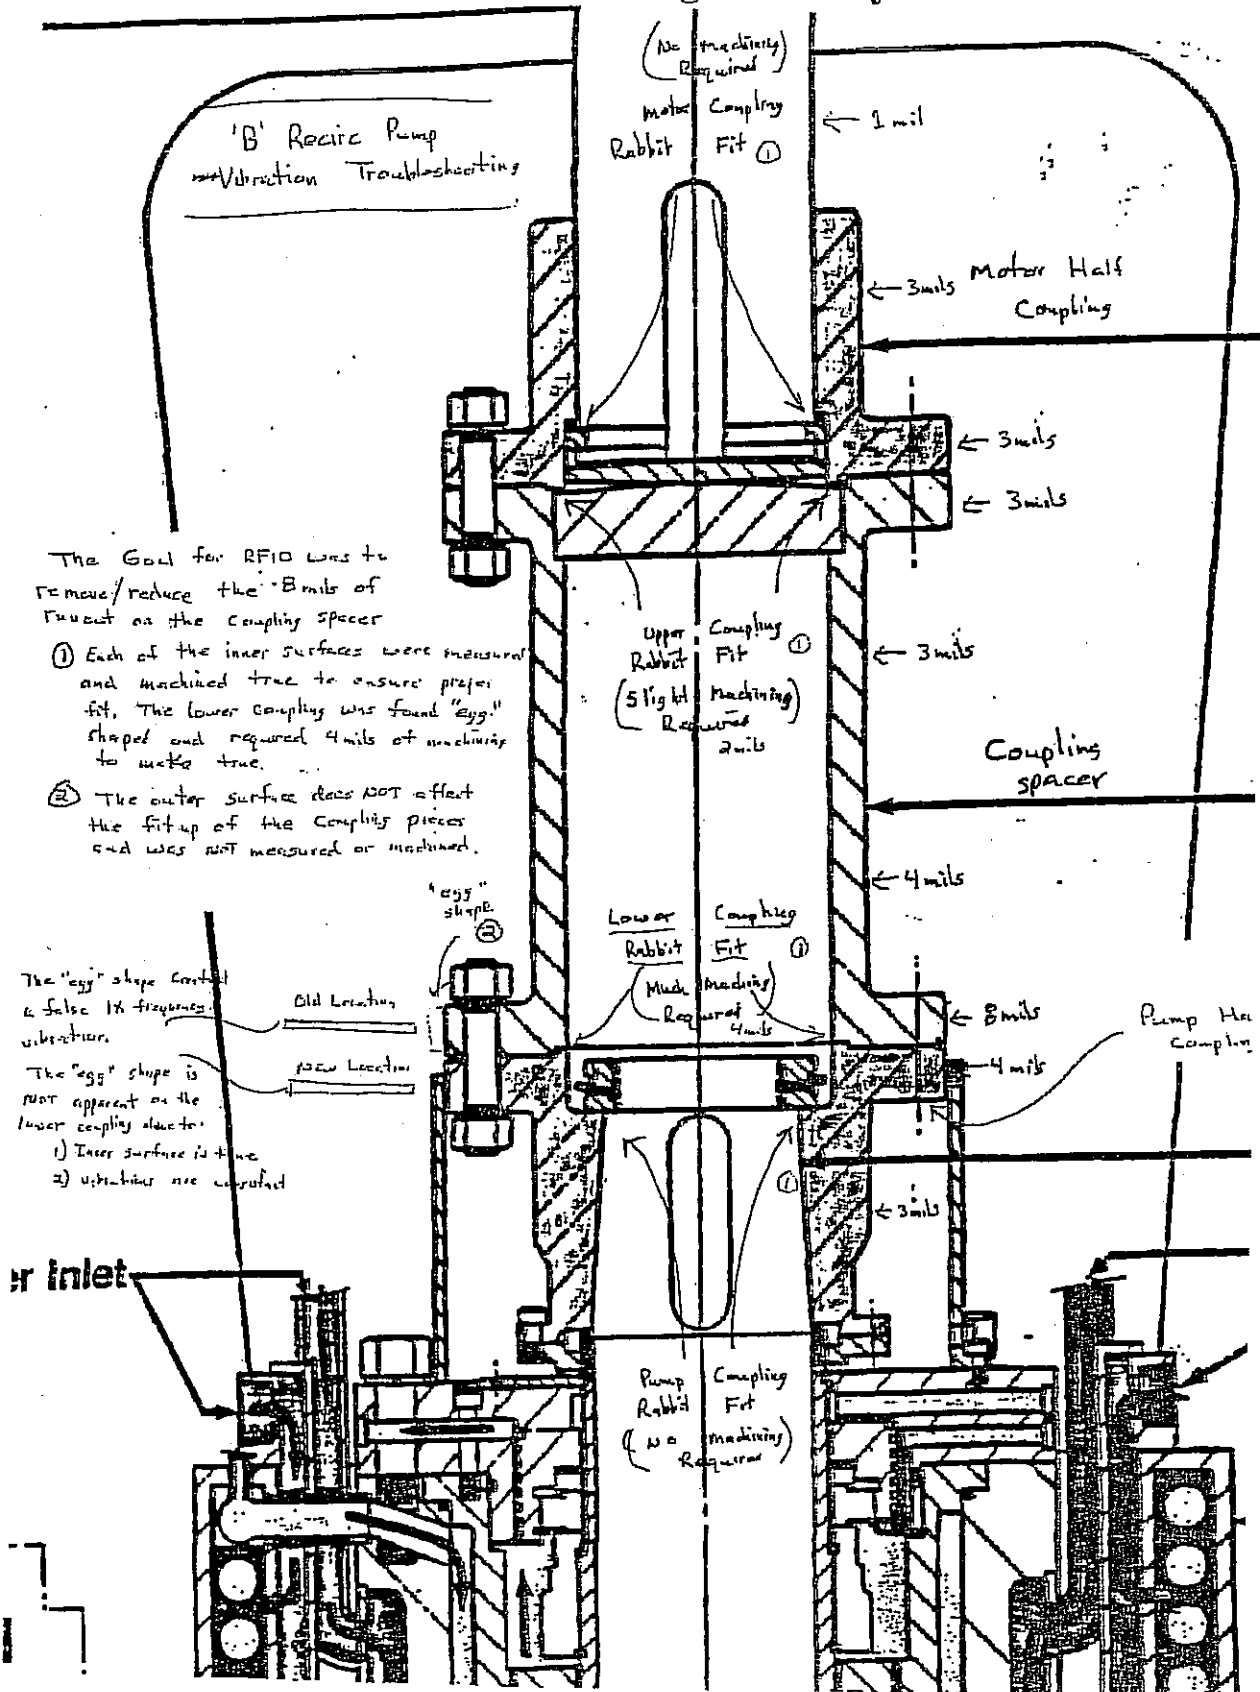 (No machining)
Required
Motor Coupling
Rabbit Fit ①
← 1 mil
'B' Recirc Pump
Vibration Troubleshooting
← 3mils
Motor Half
Coupling
← 3mils
← 3mils
The Goal for RF10 was to
remove/reduce the 8 mils of
runout on the coupling spacer
① Each of the inner surfaces were measured
and machined true to ensure proper
fit. The lower coupling was found "egg"
shaped and required 4 mils of machining
to make true.
② The outer surface does NOT affect
the fit up of the coupling pieces
and was NOT measured or machined.
Upper Coupling
Rabbit Fit ①
(Slight Machining)
Required
2mils
← 3mils
Coupling
spacer
← 4mils
"egg"
shape
②
Lower Coupling
Rabbit Fit ①
(Much Machining)
Required
4mils
← 8mils
← 4mils
Pump Ha
Couplin
The "egg" shape created
a false 1x frequency
vibration.
Old Location
New Location
The "egg" shape is
NOT apparent on the
lower coupling
1) Inner surface is true
2) vibrations are
①
← 3mils
er Inlet
Pump Coupling
Rabbit Fit
(No machining)
Required